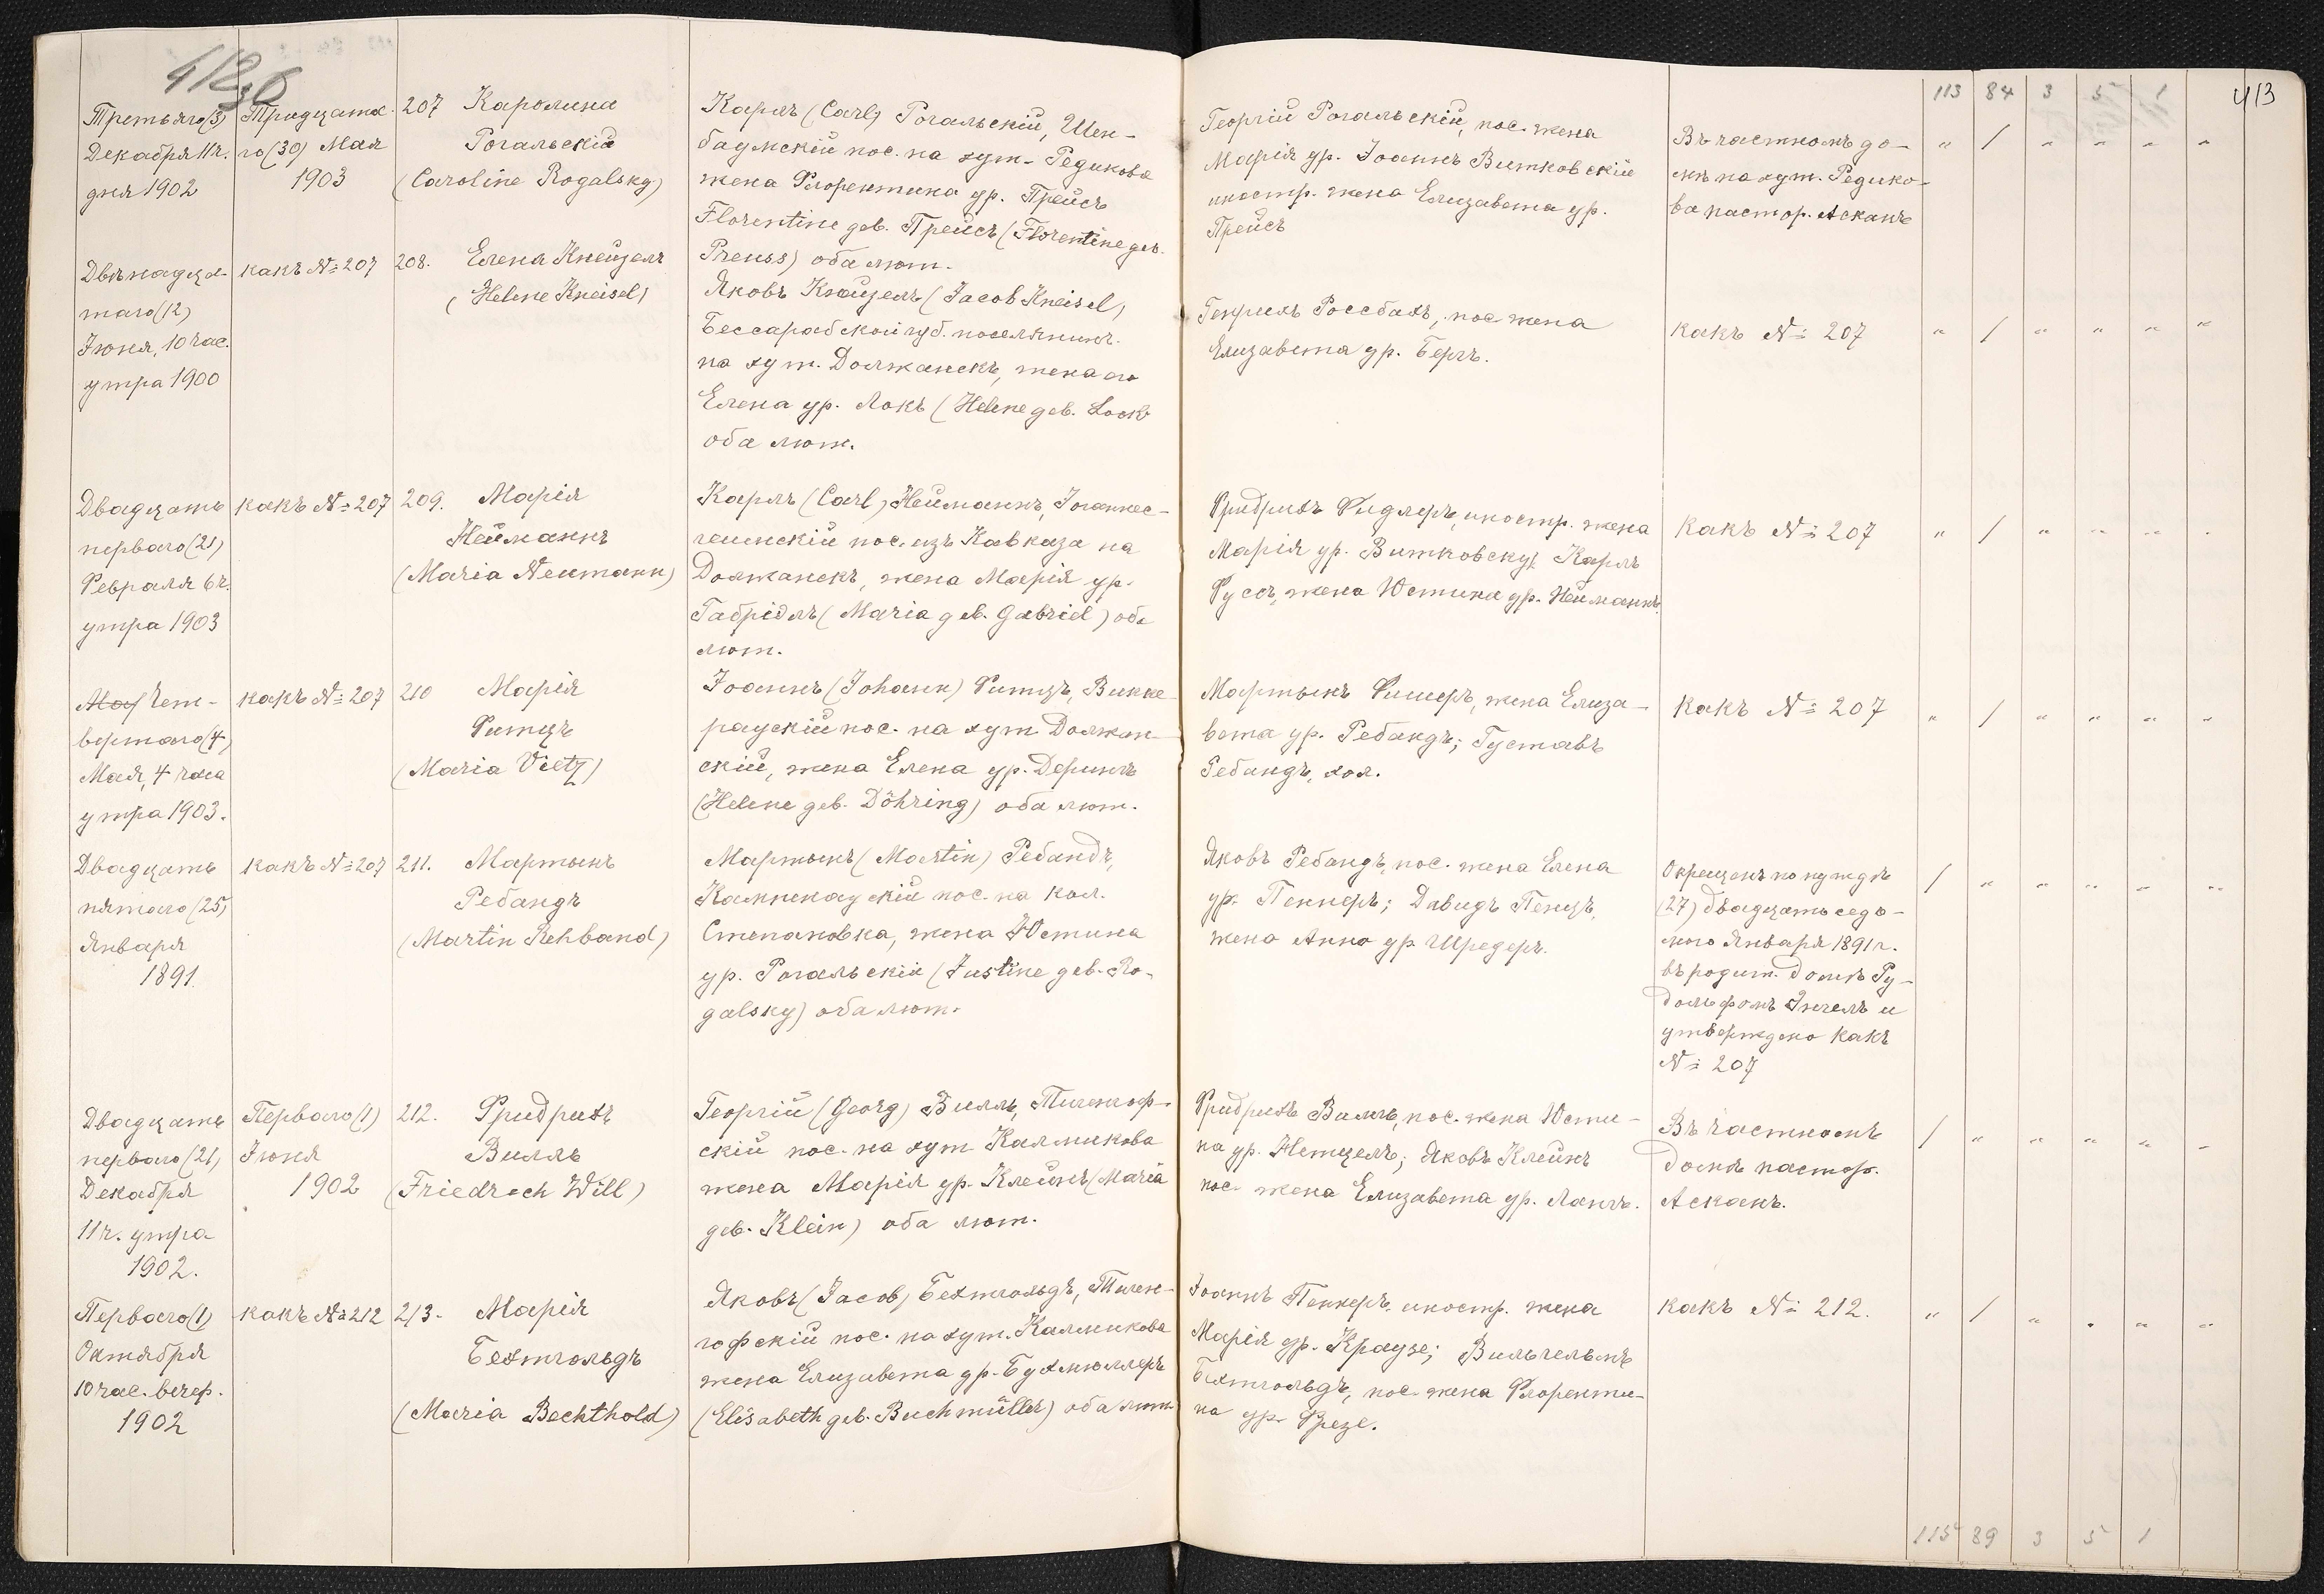 412
36
413
113 84 3 5 1
Третьяго (3)
Декабря 11 ч.
дня 1902
Тридцата-
го (30) Мая
1903
207 Каролина
Рогальскій
(Caroline Rogalsky)
Карлъ (Carl) Рогальскій, Шен-
баумскій пос. на хут. Редикова
жена Флорентина ур. Прейсъ
Florentine geb. Прейсъ (Florentine geb.
Preuss) оба лют.
Георгій Рогальскій, пос. жена
Марія ур. Іоаннъ Витковскій
иностр. жена Елизавета ур.
Прейсъ
Въ частномъ до-
мѣ на хут. Редико-
ва пастор. Асканъ
" / " " " "
Двѣнадца-
таго (12)
Іюня, 10 час.
утра 1900
какъ № 207
208. Елена Кнейзель
(Helene Kneisel)
Яковъ Кнейзель (Jacob Kneisel)
Бессарабской губ. поселянинъ
на хут. Должанскъ, жена его
Елена ур. Локъ (Helene geb. Lock
оба лют.
Генрихъ Россбахъ, пос. жена
Елизавета ур. Бергъ.
какъ № 207
" / " " " "
Двадцать
перваго (21)
Февраля 6 ч.
утра 1903
какъ № 207
209. Марія
Нейманнъ
(Maria Neumann)
Карлъ (Carl) Нейманнъ, Іоаннес-
геимскій пос. изъ Кавказа на
Должанскъ, жена Марія ур.
Габріэль (Maria geb. Gabriel) оба
лют.
Фридрихъ Фидлеръ, иностр. жена
Марія ур. Витковску, Карлъ
Фуссъ, жена Юстина ур. Нейманнъ.
какъ № 207
" / " " " "
Маf Чет-
вертаго (4)
Мая, 4 часа
утра 1903.
какъ № 207
210 Марія
Фитцъ
(Maria Vietz)
Іоаннъ (Johann) Фитцъ, Викке-
раускій пос. на хут. Должан-
скій, жена Елена ур. Дерингъ
(Helene geb. Döhring) оба лют.
Мартынъ Фишеръ, жена Елиза-
вета ур. Ребандъ; Густавъ
Ребандъ, хол.
какъ № 207
" / " " " "
Двадцать
пятаго (25)
Января
1891.
какъ № 207
211. Мартынъ
Ребандъ
(Martin Rehband)
Мартынъ (Martin) Ребандъ,
Кампенаускій пос. на кол.
Степановка, жена Юстина
ур. Рогальскій (Justine geb. Ro-
galsky) оба лют.
Яковъ Ребандъ, пос. жена Елена
ур. Пеннеръ; Давидъ Пенцъ,
жена Анна ур. Шредеръ.
Окрещенъ по нуждѣ
(27) двадцать седь-
мого Января 1891 г.
въ родит. домѣ Ру-
дольфомъ Энгель и
утверждено какъ
№ 207
/ " " " " "
Двадцать
перваго (21)
Декабря
11 ч. утра
1902.
Перваго (1)
Іюня
1902
212. Фридрихъ
Вилль
(Friedrich Will)
Георгій (Georg) Вилль, Тигенгоф-
скій пос. на хут. Калмикова
жена Марія ур. Клейнъ (Maria
geb. Klein) оба лют.
Фридрихъ Вилль, пос. жена Юсти-
на ур. Нетцель; Яковъ Клейнъ
пос. жена Елизавета ур. Лангъ.
Въ частномъ
домѣ пастор.
Асканъ.
/ " " " " "
Перваго (1)
Октября
10 час. вечер.
1902
какъ № 212
213. Марія
Бехтгольдъ
(Maria Bechthold)
Яковъ (Jacob) Бехтгольдъ, Тиген-
гофскій пос. на хут. Калмикова
жена Елизавета ур. Бухмюллеръ
(Elisabeth geb. Buchmüller) оба лют.
Іоаннъ Пеннеръ, иностр. жена
Марія ур. Краузе; Вильгельмъ
Бехтгольдъ, пос. жена Флоренти-
на ур. Фрезе.
какъ № 212.
" / " " " "
115 89 3 5 1